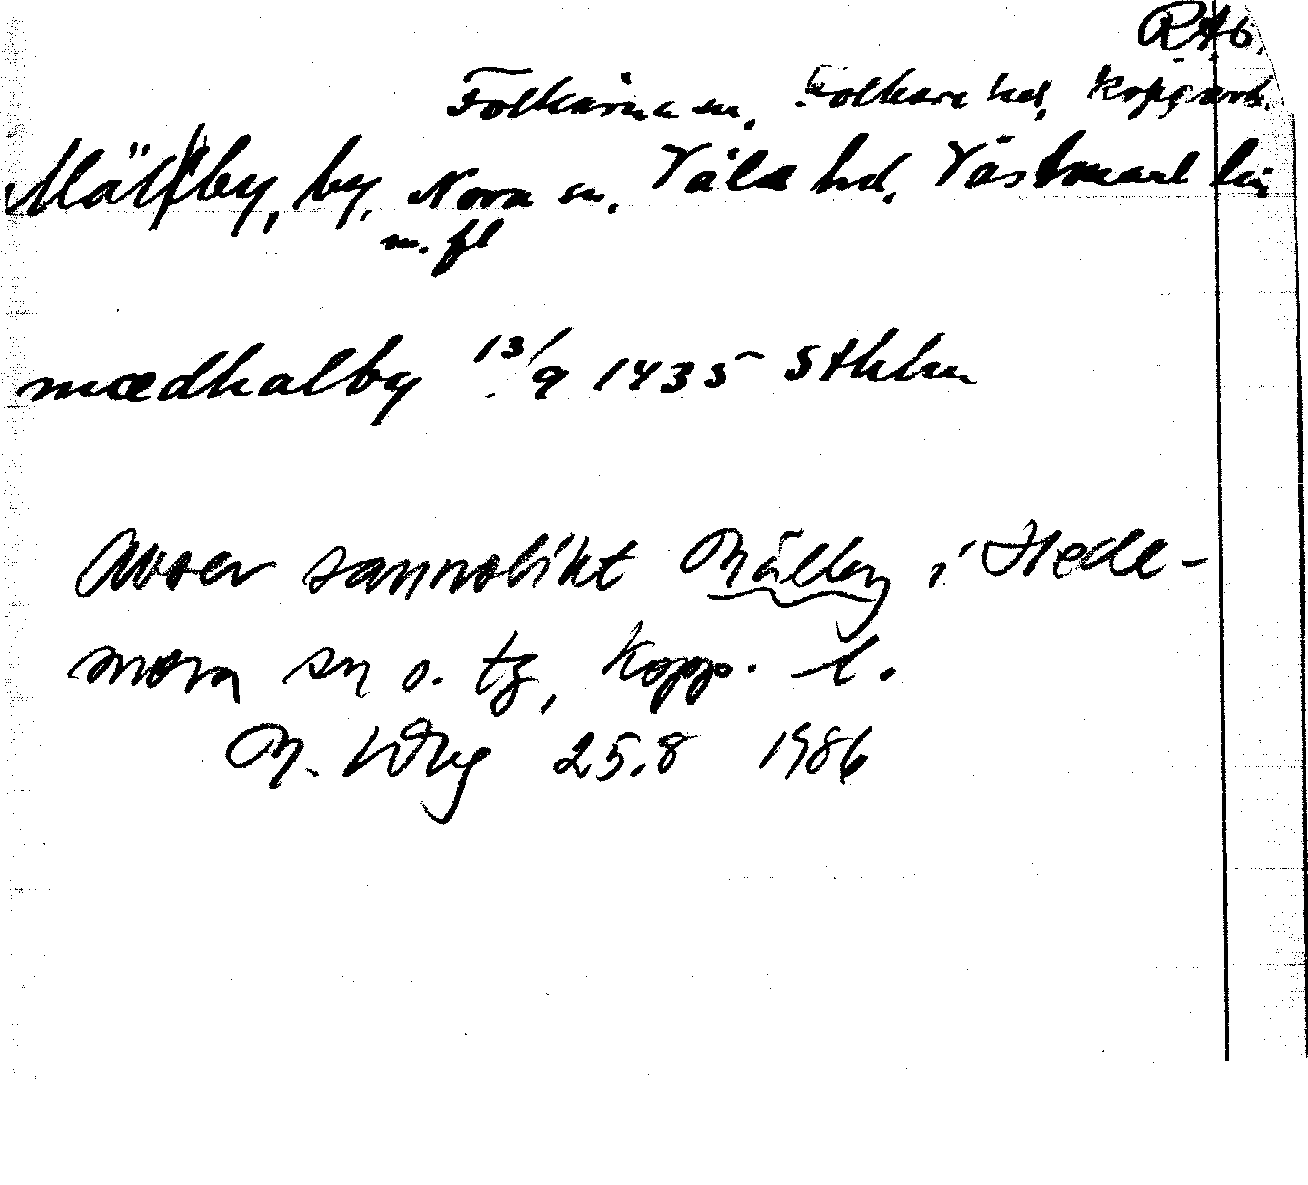 RAb.
Folkärna sn, Folkare hd, Kopparb.
Mällby, by, Nora sn. Våla hd. Västmanl. län
m. fl
mædhalby 13/9 1435 Sthlm
Avser sannolikt Mälby i Hede-
mora sn o. tg, Kopp. l.
M. Wbg 25.8 1986